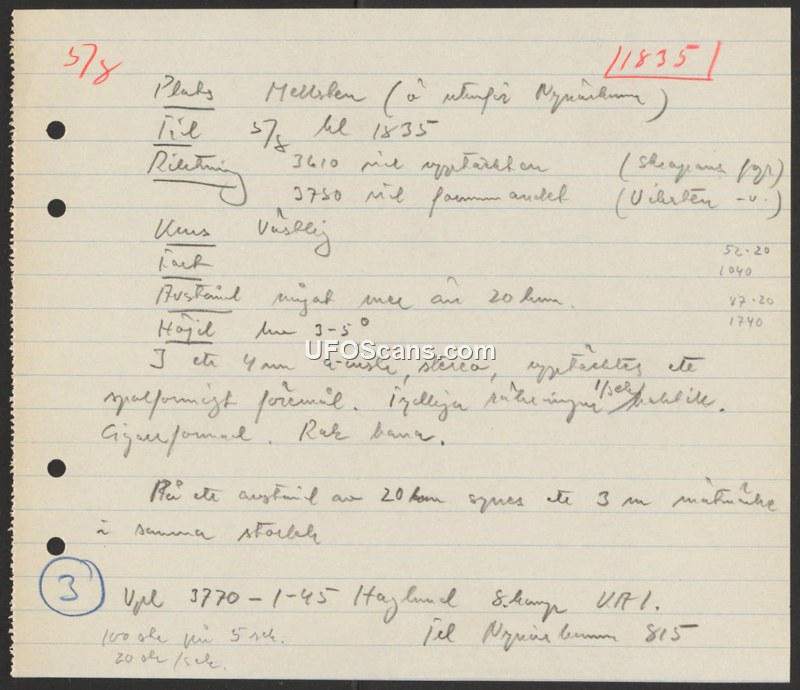 5/8 1835
Plats Mellsten (ö utanför Nynäshamn)
Tid 5/8 kl 1835
Riktning 3610 vid upptäckten (Skepans fyr)
3750 vid försvinnandet (Viksten -"-)
Kurs Västlig
52·20
Fart 1040
Avstånd något mer än 20 km. 87·20
Höjd km 3-5° 1740
I ett 4 m , stereo, upptäcktes ett
spolformigt föremål. Tydliga 1/sek bakåt.
Cigarrformad. Rak bana.
På ett avstånd av 20 km synes ett 3 m
i samma storlek
3 Vpl 3770-1-45 Haglund 8. komp V.A.1.
100 str på 5 sek. Tel Nynäshamn 815
20 str/sek.
UFOScans.com